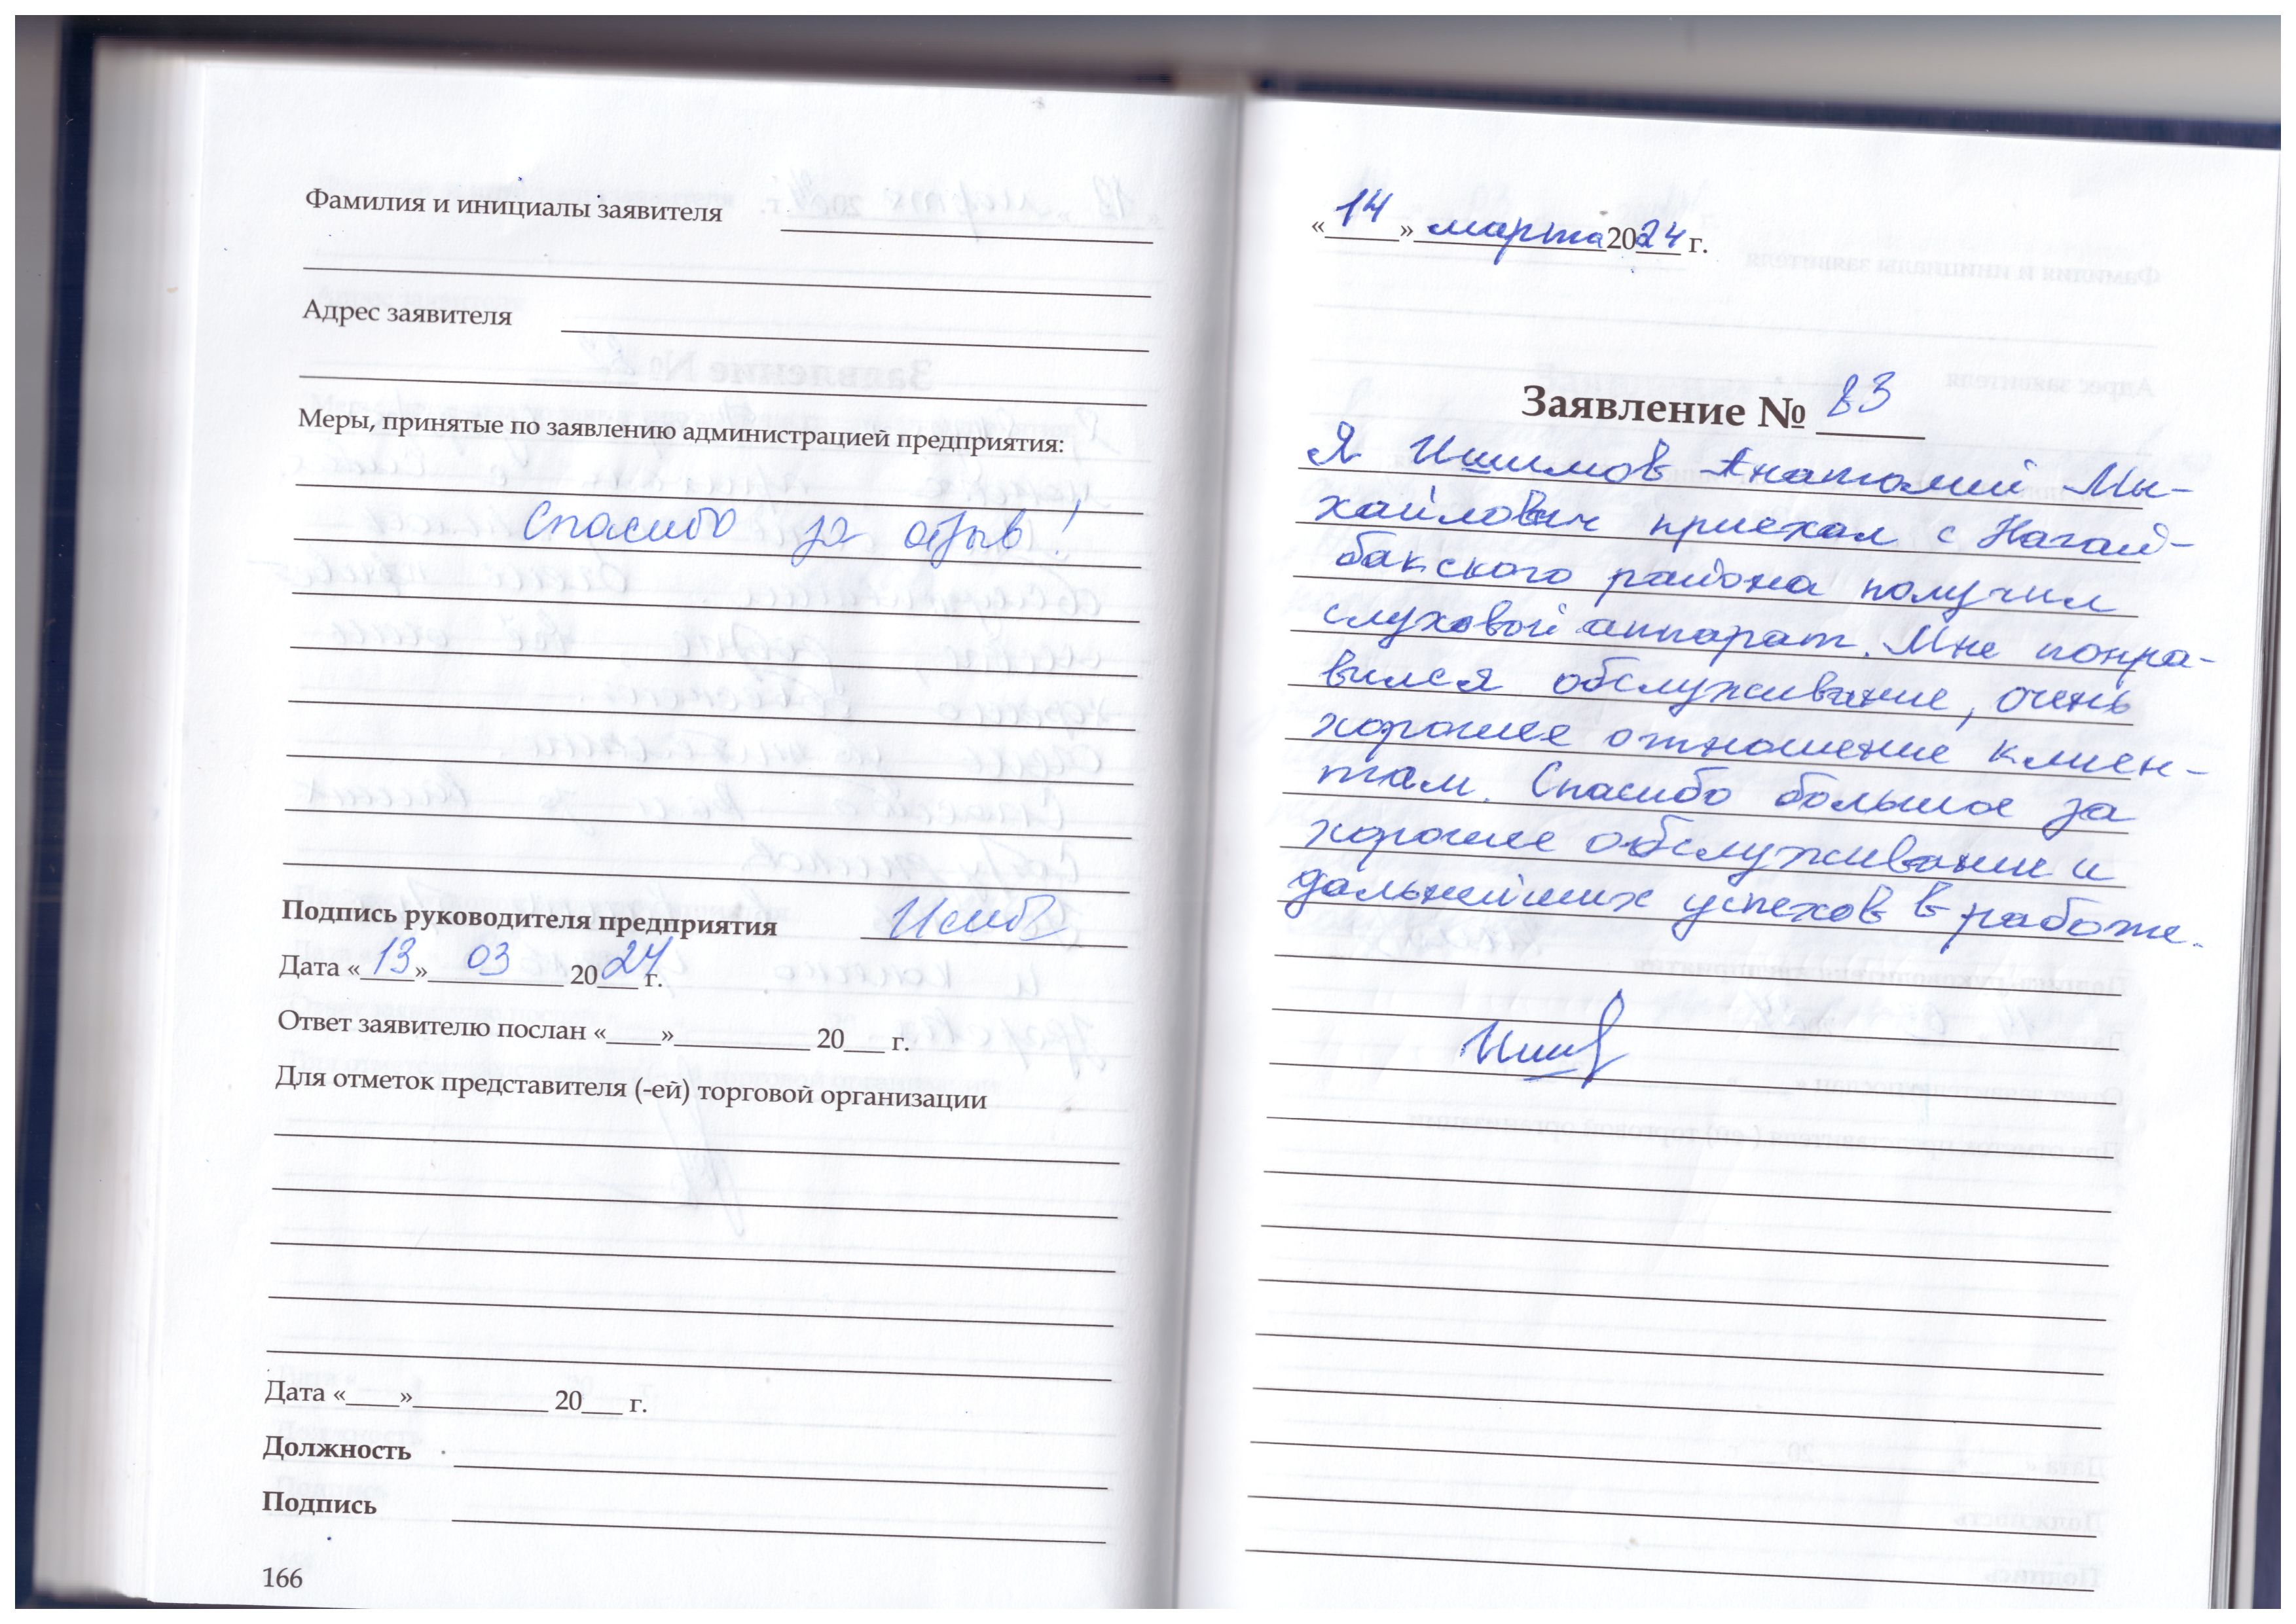 Фамилия и инициалы заявителя
Адрес заявителя
Меры, принятые по заявлению администрацией предприятия:
Спасибо за отзыв!
Подпись руководителя предприятия
Дата «13» 03 2024 г.
Ответ заявителю послан «____»__________ 20___ г.
Для отметок представителя (-ей) торговой организации
Дата «____»__________ 20___ г.
Должность
Подпись
166
«14» марта 2024 г.
Заявление № 83
Я Ишимов Анатолий Ми-
хайлович приехал с Нагай-
бакского района получил
слуховой аппарат. Мне понра-
вился обслуживание, очень
хорошее отношение клиен-
там. Спасибо большое за
хорошее обслуживание и
дальнейших успехов в работе.